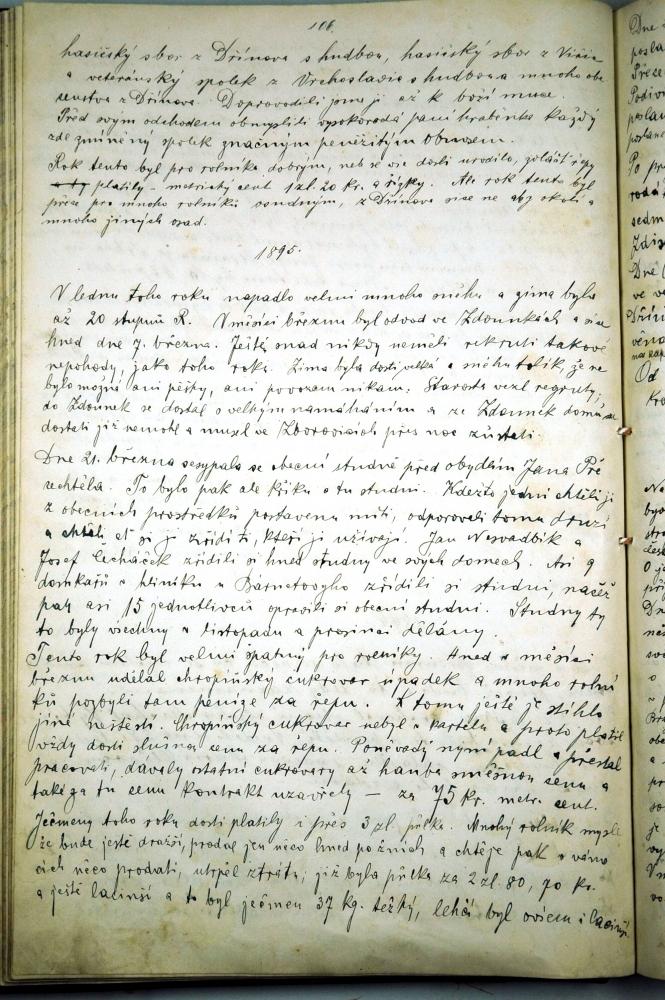 106.
hasičský sbor z Dřínova s hudbou, hasičský sbor z Věžic
a veteránský spolek z Vrchoslavic s hudbou a mnoho obe
censtva z Dřínova. Doprovodili jsme ji až k boží muce.
Před svým odchodem obmyslili vysokorodá paní hraběnka každý
zde zmíněný spolek značným peněžitým obnosem.
Rok tento byl pro rolníka dobrým, neb se vše dosti urodilo, zvlášť řepy
platily - metrický cent 1 zl. 20 kr. a řízky. Ale rok tento byl
přece pro mnoho rolníků osudným, z Dřínova sice ne, ale z okolí a
mnoho jiných osad.
1895.
V lednu toho roku napadlo velmi mnoho sněhu a zima byla
až 20 stupňů R. V měsíci březnu byl odvod ve Zdounkách a sice
hned dne 7. března. Ještě snad nikdy neměli rekruti takové
nepohody, jako toho roku. Zima byla dosti velká a sněhu tolik, že ne
bylo možná ani pěšky, ani povozem nikam. Starosta vezl regruty,
do Zdounek se dostal s velkým namáháním a ze Zdounek domů se
dostati již nemohl a musel ve Zborovicích přes noc zůstati.
Dne 21. března sesypala se obecní studně před obydlím Jana Pře
rechtěla. To bylo pak ale křiku o tu studni. Kdežto jedni chtěli ji
z obecních prostředků postavenu míti, odporovali tomu druzí
a chtěli ať si ji zřídí ti, kteří ji užívají. Jan Nesvadbík a
Josef Čecháček zřídili si hned studny ve svých domech. Asi 9
domkařů z hliníku u Bárnetového zřídili si studni, načež
pak asi 15 jednotlivců opravili si obecní studni. Studny ty
to byly všechny v listopadu a prosinci dělány.
Tento rok byl velmi špatný pro rolníky. Hned v měsíci
březnu udělal chropiňský cukrovar úpadek a mnoho rolní
ků pozbyli tam peníze za řepu. K tomu ještě je stihlo
jiné neštěstí. Chropiňský cukrovar nebyl v kartelu a proto platil
vždy dosti slušnou cenu za řepu. Poněvadž nyní padl a přestal
pracovati, dávaly ostatní cukrovary až hanba směšnou cenu a
také za tu cenu kontrakt uzavřely - za 75 kr. metr. cent.
Ječmeny toho roku dosti platily i přes 3 zl. půlka. Mnohý rolník mysle
že bude ještě dražší, prodal jen něco hned po žních a chtěje pak o váno
cích něco prodati, utrpěl ztrátu; již byla půlka za 2 zl. 80, 70 kr.
a ještě lacinší a to byl ječmen 37 kg. těžký, lehčí byl ovšem i lacinější.